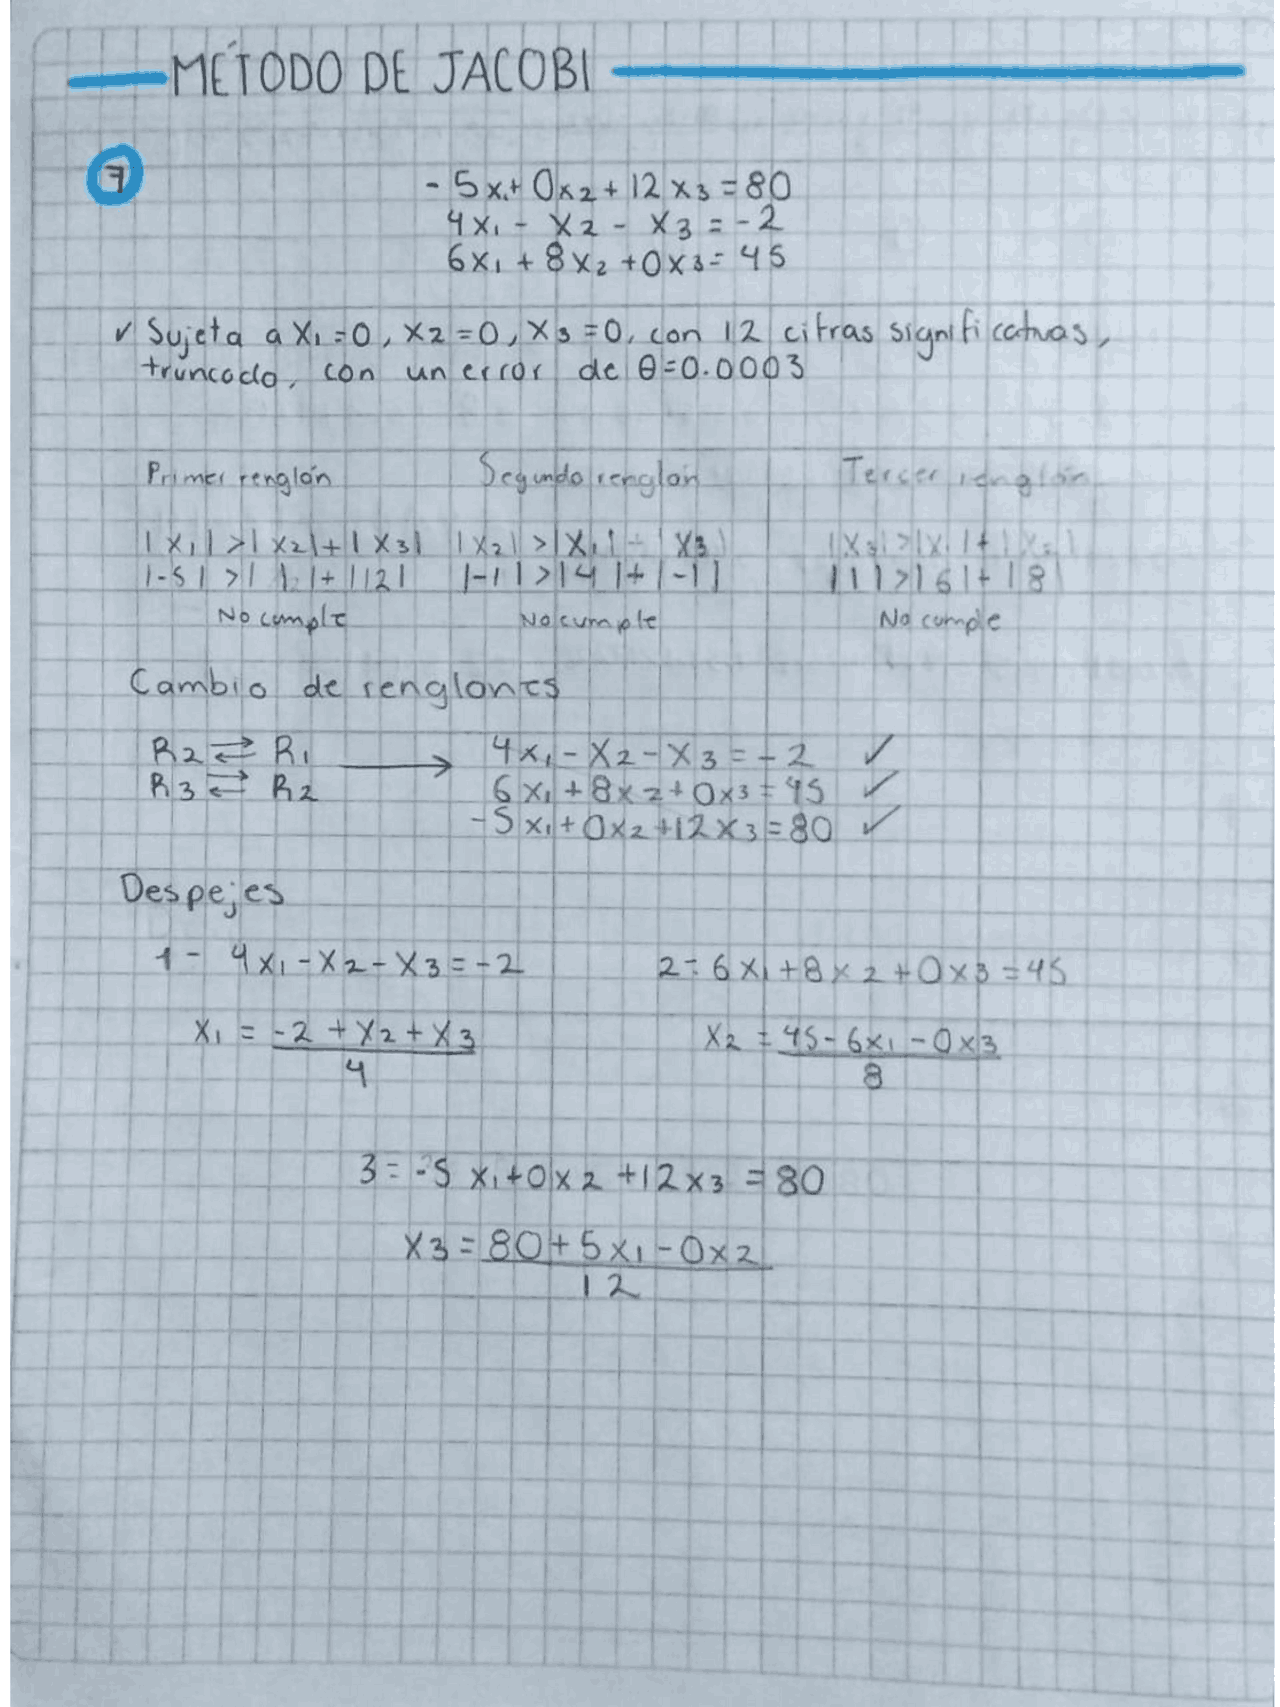 MÉTODO DE JACOBI
7
-5x₁+0x₂+12x₃=80
4x₁-x₂-x₃=-2
6x₁+8x₂+0x₃=45
✓ Sujeta a x₁=0, x₂=0, x₃=0, con 12 cifras significativas,
truncado, con un error de θ=0.0003
Primer renglón
|x₁|>|x₂|+|x₃|
|-5|>| |+|12|
No cumple
Segundo renglón
|x₂|>|x₁|+|x₃|
|-1|>|4|+|-1|
No cumple
Tercer renglón
|x₃|>|x₁|+|x₂|
|1|>|6|+|8|
No cumple
Cambio de renglones
R2⇄R1
R3⇄R2
4x₁-x₂-x₃=-2 ✓
6x₁+8x₂+0x₃=45 ✓
-5x₁+0x₂+12x₃=80 ✓
Despejes
1- 4x₁-x₂-x₃=-2
x₁ = -2+x₂+x₃
4
2= 6x₁+8x₂+0x₃=45
x₂ = 45-6x₁-0x₃
8
3= -5x₁+0x₂+12x₃=80
x₃= 80+5x₁-0x₂
12